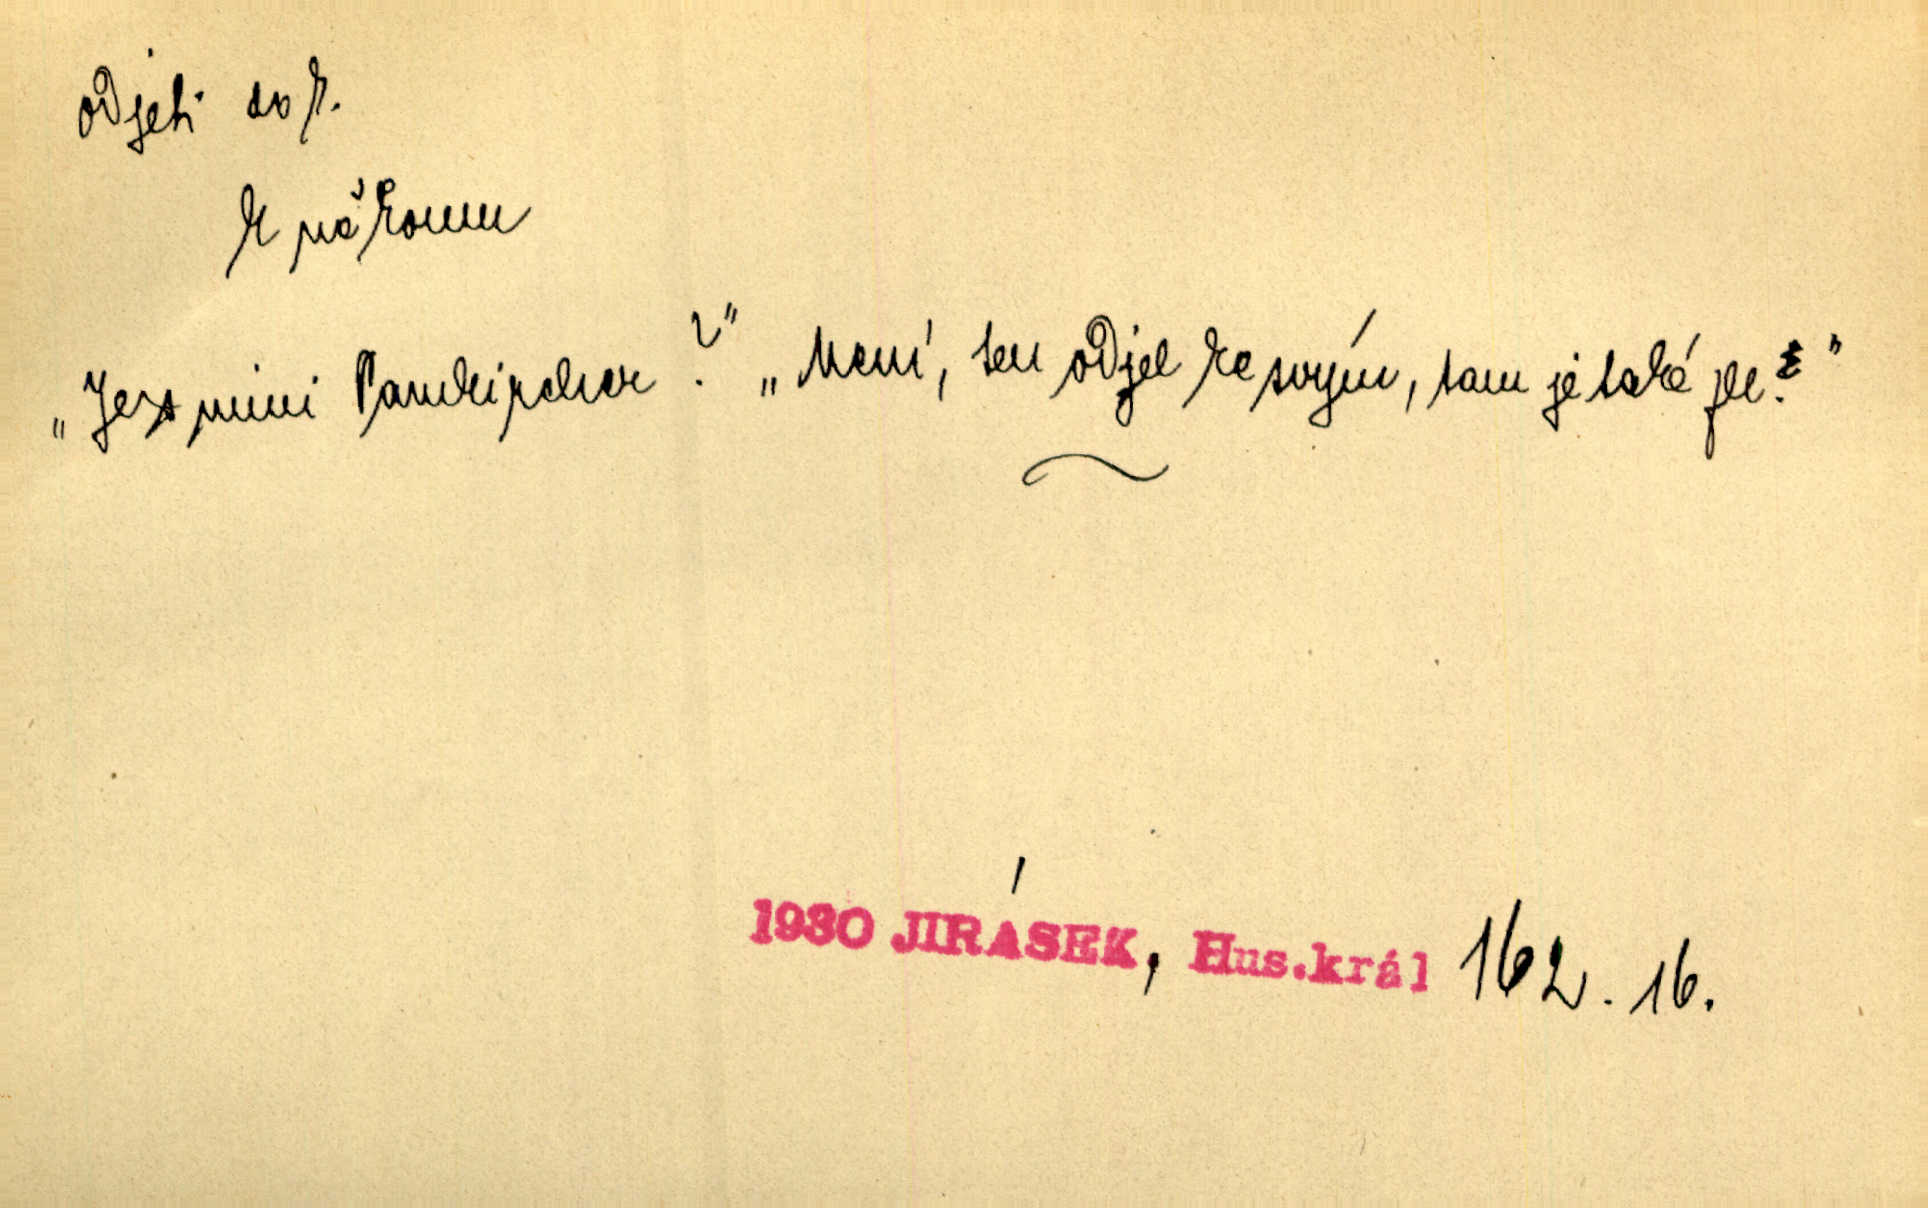 odjeti dok.
k někomu
„Je s nimi Pamkipcher?" „Není, ten odjel ke svým, tam je také zle."
1930 JIRÁSEK, Hus.král 162.16.